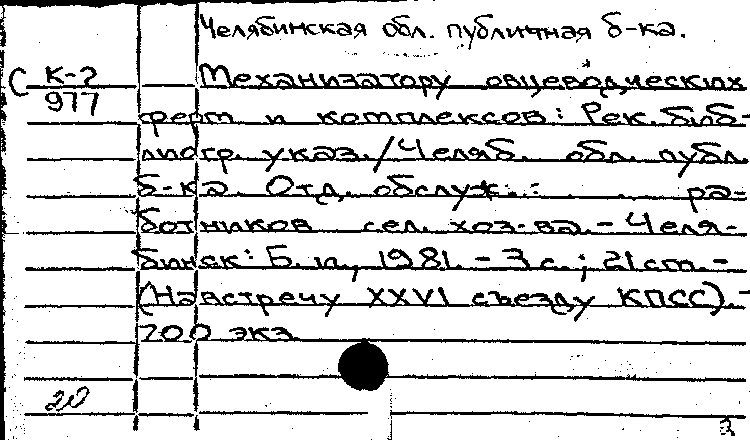 Челябинская обл. публичная б-ка.
С К-2 Механизатору овцеводческих
977
ферм и комплексов: Рек. биб-
лиогр. указ./Челяб. обл. публ.
б-ка. Отд. обслуж. ра-
ботников сел. хоз-ва. - Челя-
бинск: Б. и., 1981. - 3 с.; 21 см. -
(Навстречу XXVI съезду КПСС). -
200 экз
20